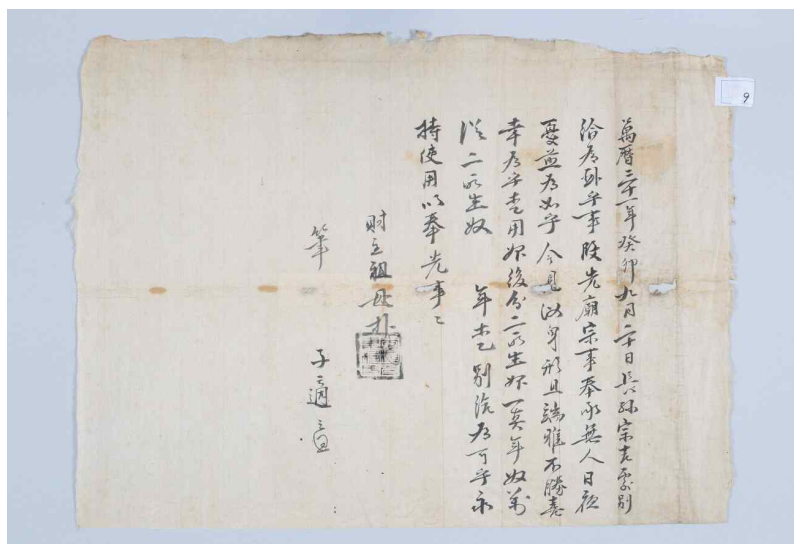 萬曆三十一年癸卯九月二十日長孫宗吉處別
給爲臥乎事段先廟宗事奉承無人日夜
憂爲如乎今見汝身形且端雅不勝喜
幸爲乎用婢後二所生婢一年奴
二所生奴 年乙別給爲可乎永
持使用以奉先事
財主祖母朴
筆 子適
9